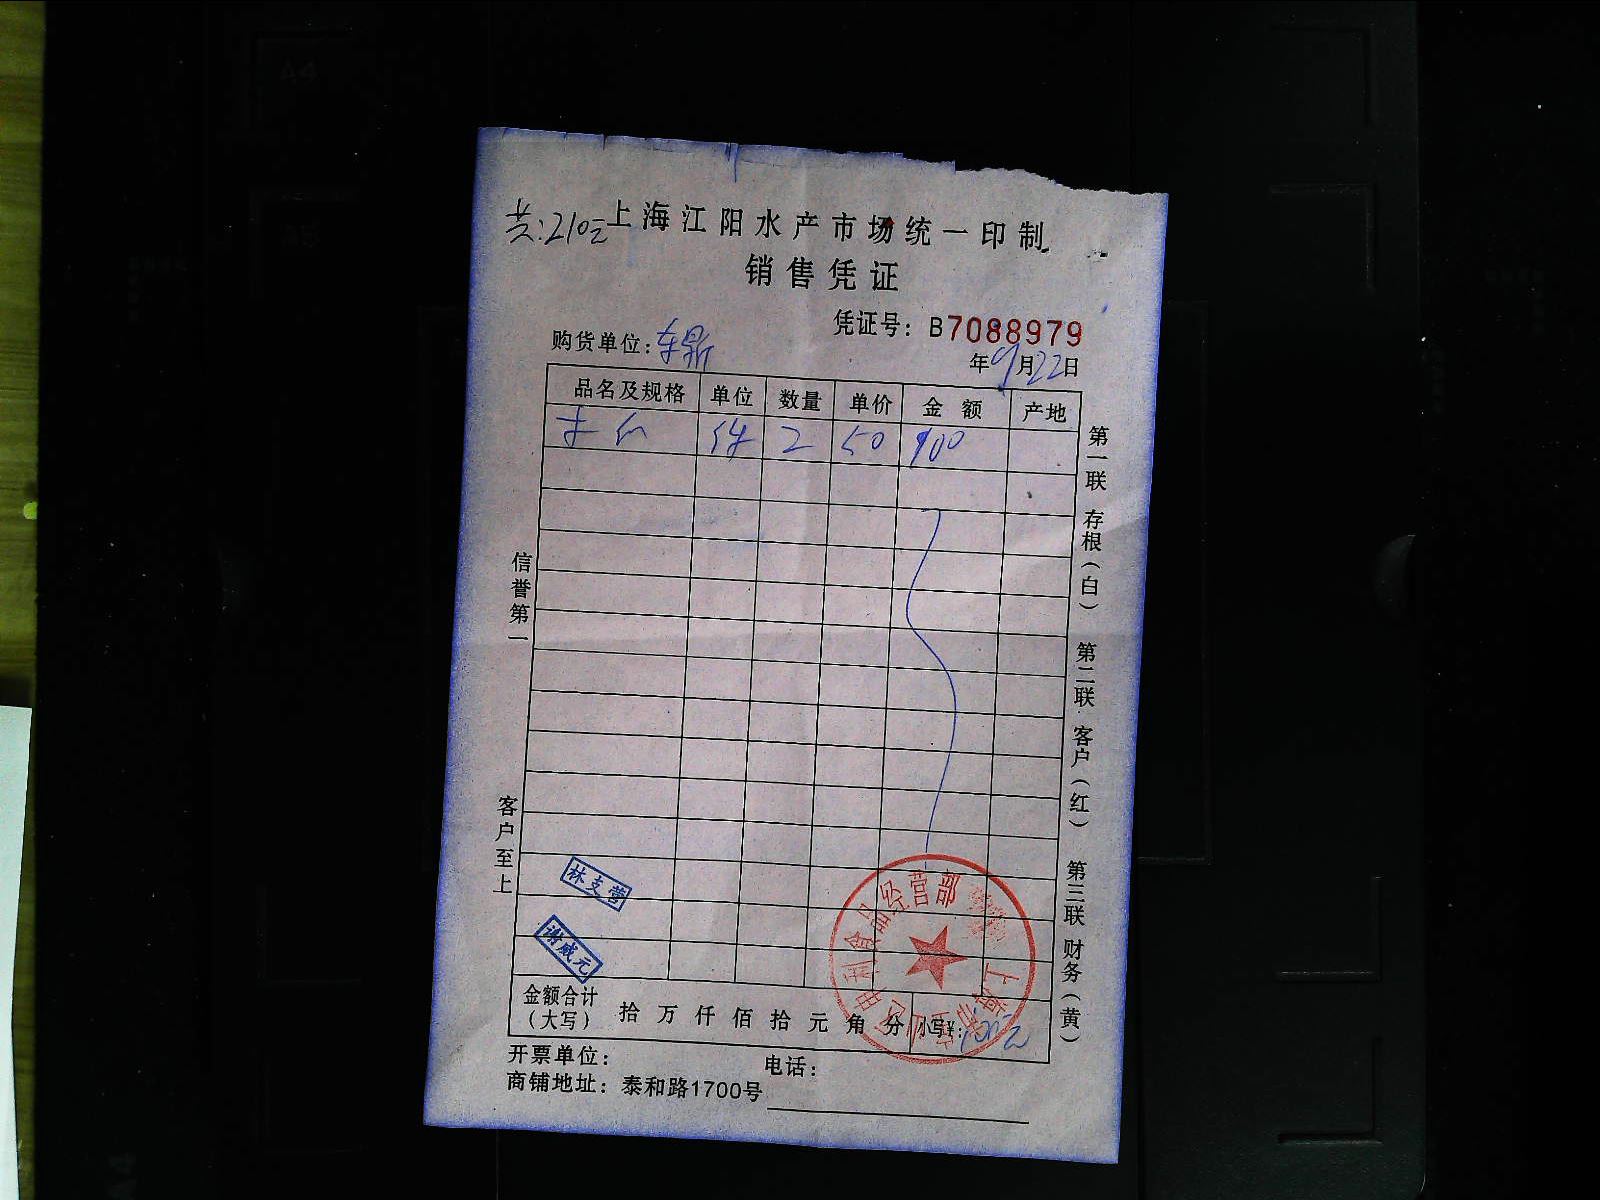 共:210元
上海江阳水产市场统一印制
销售凭证
凭证号：B7088979
购货单位：车鼎
年9月22日
品名及规格 单位 数量 单价 金额 产地
件 2 50 100
信誉第一
客户至上
第一联 存根（白） 第二联 客户（红） 第三联 财务（黄）
林支营
谢威元
食品经营部
上海
金额合计（大写） 拾 万 仟 佰 拾 元 角 分 小写¥：100元
开票单位： 电话：
商铺地址：泰和路1700号